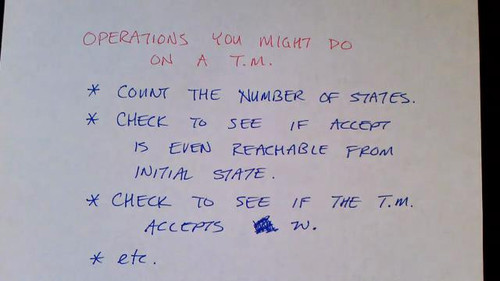 OPERATIONS YOU MIGHT DO
ON A T.M.
* COUNT THE NUMBER OF STATES.
* CHECK TO SEE IF ACCEPT
IS EVEN REACHABLE FROM
INITIAL STATE.
* CHECK TO SEE IF THE T.M.
ACCEPTS W.
* etc.